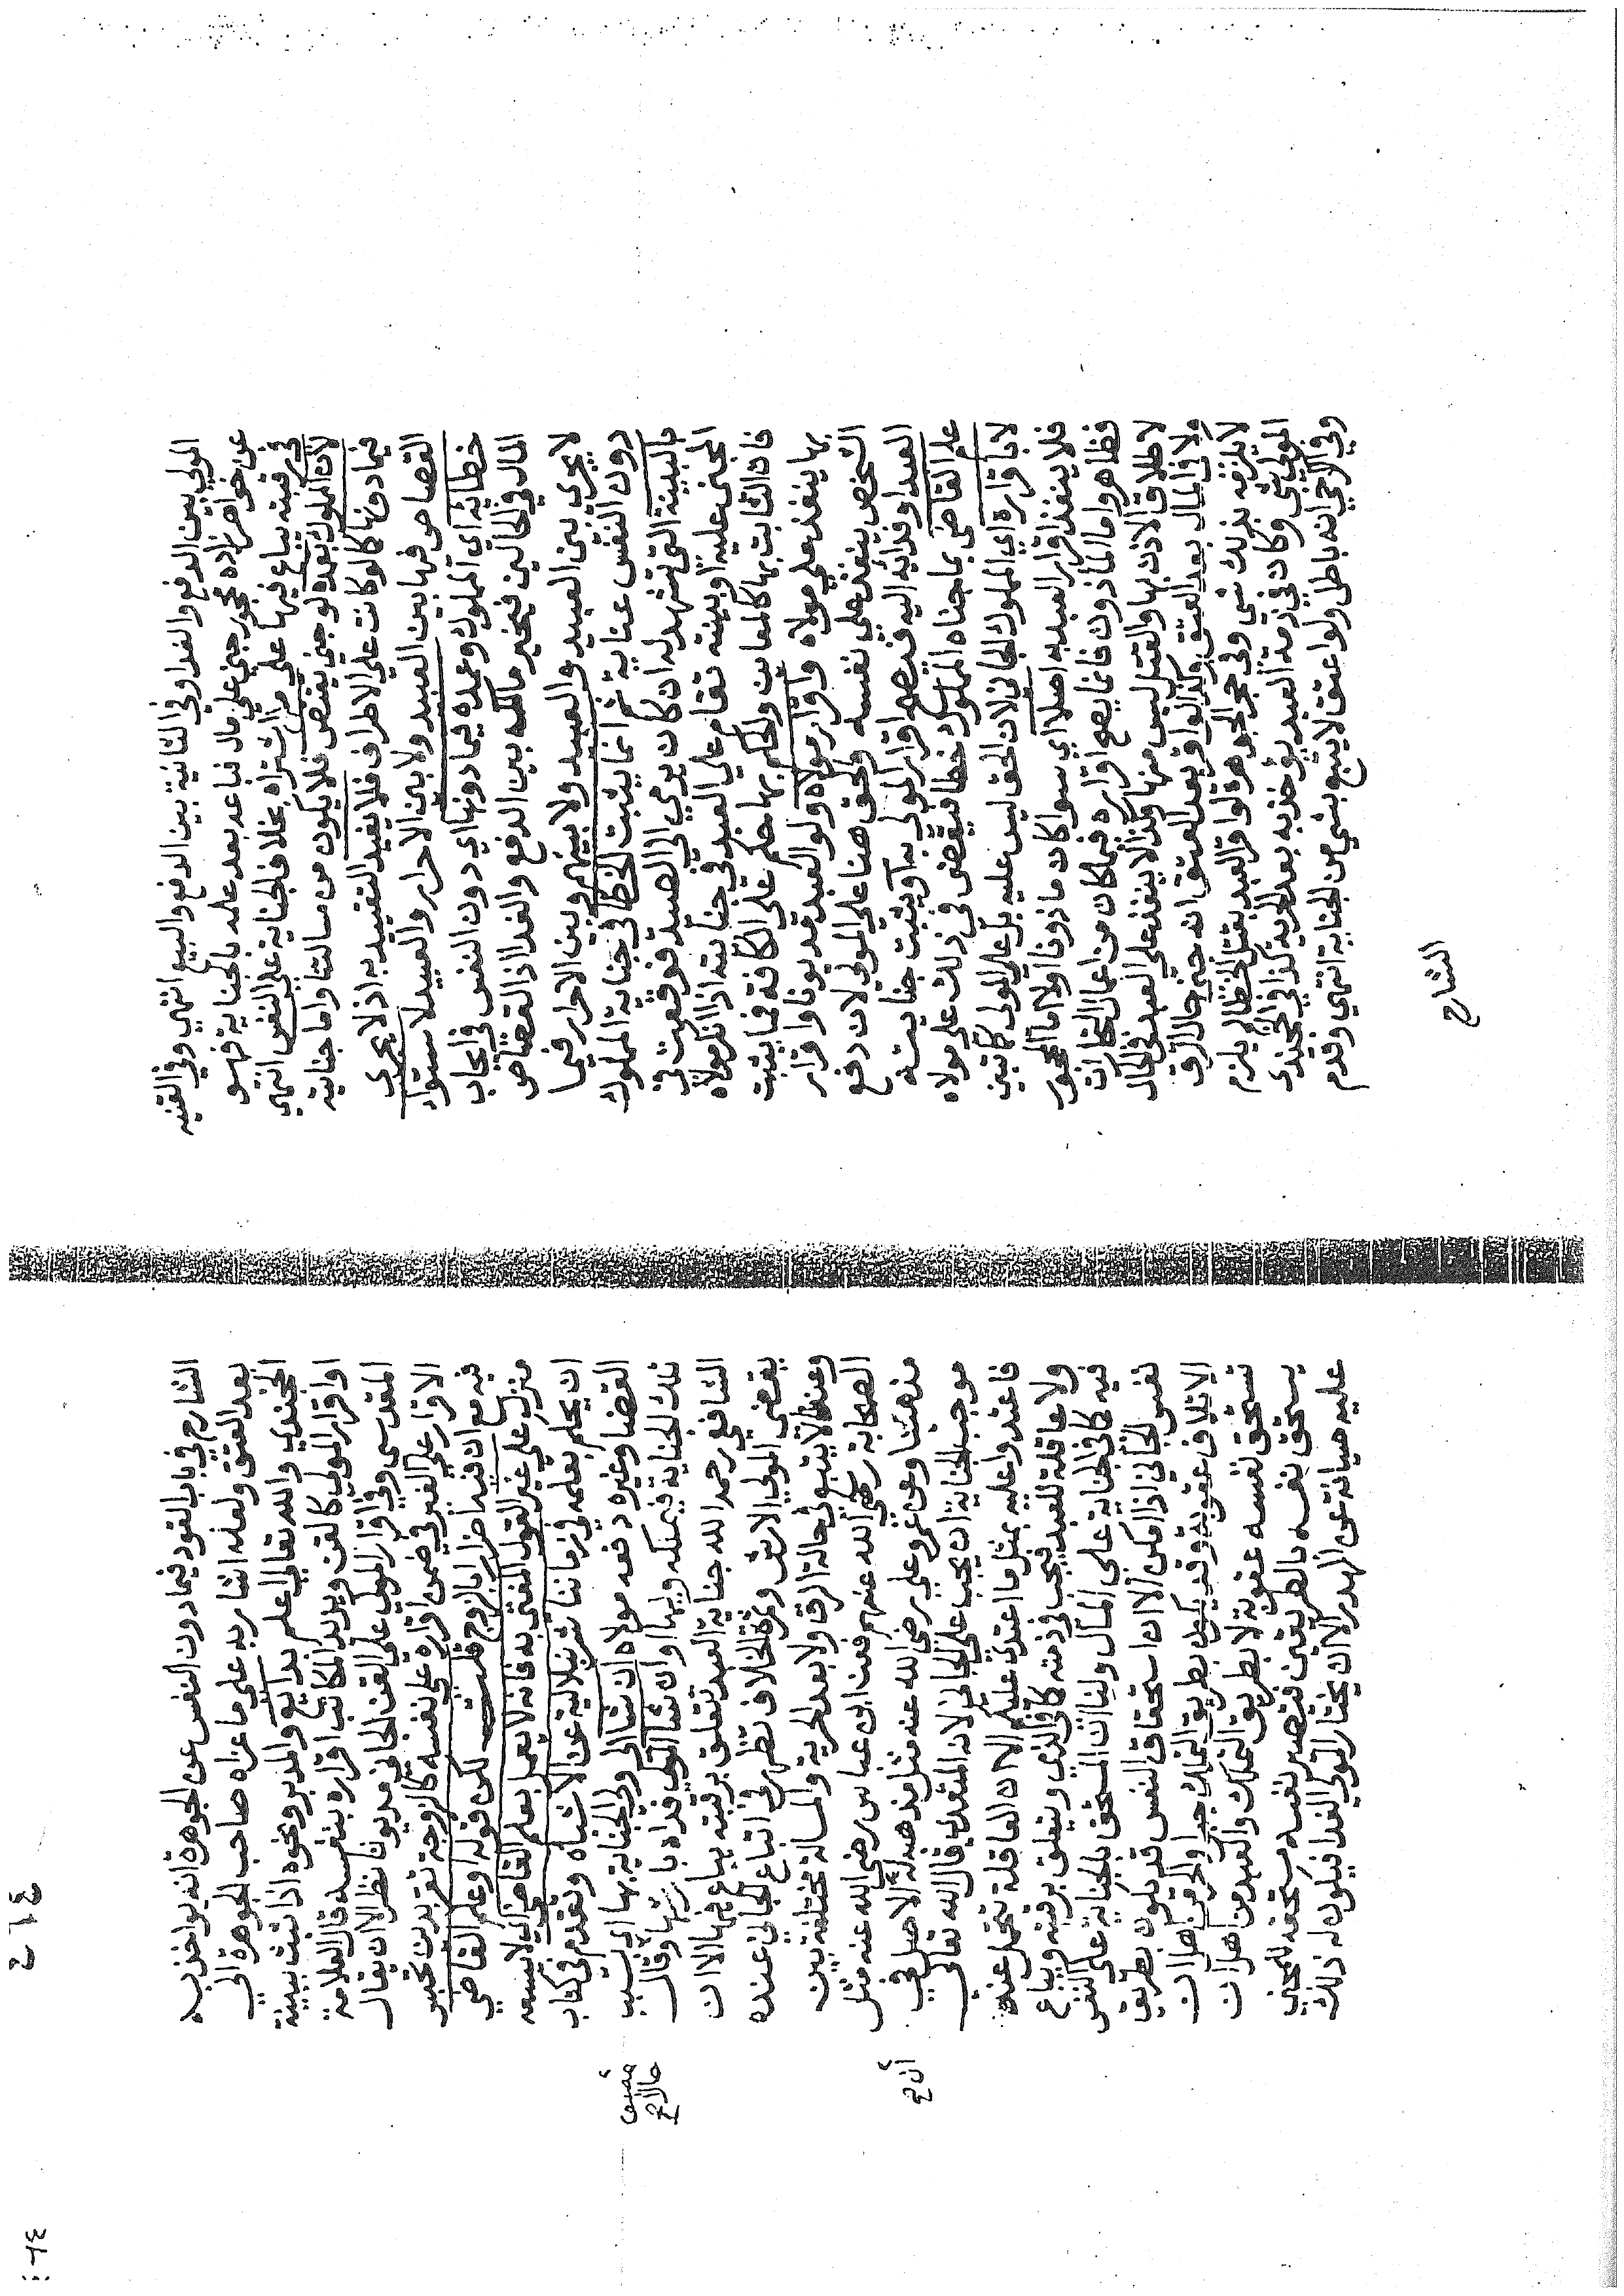 المولي بين الدفع والفدا وفي الثانية بين الدفع والبيع انتهي وفي القنيه
عن خواهر زاده محجور جني علي مال فباعه بعد علمه بالجناية فهو
في رقبته يباع فيها علي من اشتراه بخلاف الجناية علي النفس انتهي
لان المملوك بعد ولو جني يقتص فلا يكون من مسالتنا واما جناية
فيما دونها كما لو كانت علي الاطراف فلا يفيد التقييد به اذ لا يجري
القصاص فيها بين العبيد ولا بين الاحرار والعبيد لاستواء
خطائه اي المملوك وعمده فيما دونها اي دون النفس في ايجاب
المال في الحالين فيخير مالكه بين الدفع والفدا اذ القصاص
لا يجري بين العبيد والعبيد ولا بينهم وبين الاحرار فيما
دون النفس عناية ثم انما يثبت الخطا في جناية المملوك
بالبينة التي تشهد له ان كان يرمي الي الصيد فوقعت في
المجني عليه او بينة تقام علي العبد في جنايته اذا انكر مولاه
فان الثابت بها كالمعاين والحكم بها حكم علي الكافة فما يثبت
بها ينفذ علي مولاه واقرار مولاه ولو العبد مديونا واقرار
الشخص ينفذ علي نفسه والحق هنا علي المولي لان دفع
العبد او فدائه اليه فيصح اقرار المولي به او يثبت جنايته
علم القاضي بما جناه المملوك خطا فيقضي في ذلك علي مولاه
لا باقراره اي المملوك الجاني لان الحق ليس عليه بل علي المولي كما تبين
فلا ينفذ اقرار العبد به اصلا اي سوا كان ماذونا اولا اما المحجور
فظاهر واما المأذون فانما يصح اقراره فيما كان من اعمال التجارات
لاطلاق الاذن بها والقتل ليس منها وكذا لا ينفذ علي العبد في الحال
ولا في المال بعد العتق وكذا لو اقر بعد العتق انه جني حال الرق
لا يلزمه بذلك شي وفي حجر الجوهرة لو اقر العبد بقتل الخطا لم يلزم
المولي شي وكان في ذمة العبد يؤخذ به بعد الحرية كذا في الخجندي
وفي الكرخي انه باطل ولو اعتق لا يتبع بشي من الجناية انتهي وقدم
الشارح
الشارح في باب القود فيما دون النفس عن الجوهرة انه يواخذ به
بعد العتق ولعله اشار به علي ما عزاه صاحب الجوهرة الي
الخجندي والله تعالي اعلم بدايع والمدبر ونحوه اذا ثبت ببينة
او اقرار المولي كالقن ويزيد المكاتب اقراره بنفسه قال العلامة
المقدسي وفي اقرار المولي علي القن الجاني مديونا نظر الا ان يقال
الاقرار علي الغير في ضمن اقراره علي نفسه كالزوجة تقر بدين تحبس
فيه مع ان فيه اضرار بالزوج قلت لكن قوله او علم القاضي
منزل علي غير القول المفتي به فانه لا يعمل بعلم القاضي اي لا يسعه
ان يحكم بعلمه في زماننا شرنبلالية عن الاشباه وتقدم في كتاب
القضا وغيره دفعه مولاه ان شا الي ولي الجناية بها اي بسبب
تلك الجناية فيملكه وليها وان شا المولي فداه بارشها وقال
الشافعي رحمه الله جناية العبد تتعلق برقبته يباع فيها الا ان
يقضي المولي الارش وثمرة الخلاف تظهر في اتباع الجاني عنده
وعندنا لا يتبع في حالة الرق ولا بعد الحرية والمسالة مختلفة بين
الصحابة رضي الله عنهم فعن ابن عباس رضي الله عنه مثل
مذهبنا وعن عمر وعلي رضي الله عنه مثل مذهبه له الاصل في
موجب الجناية ان يجب علي الجاني لانه المتعدي قال الله تعالي
فاعتدوا عليه بمثل ما اعتدي عليكم الا ان العاقلة تتحمل عنه
ولا عاقلة للعبد فيجب في ذمته كما في الذمي ويتعلق برقبته ويباع
فيه كما في الجناية علي المال ولنا ان المستحق بالجناية علي النفس
نفس الجاني اذا امكن الا ان استحقاق النفس قد يكون بطريق
الاتلاف عقوبة وقد يكون بطريق التملك جبرا والحر من اهل ان
تستحق نفسه عقوبة لا بطريق التملك والعبد من اهل ان
يستحق نفسه بالطريقين فتصير نفسه مستحقه للمجني
عليه صيانة عن الهدر الا ان يختار المولي الفدا فيكون له ذلك